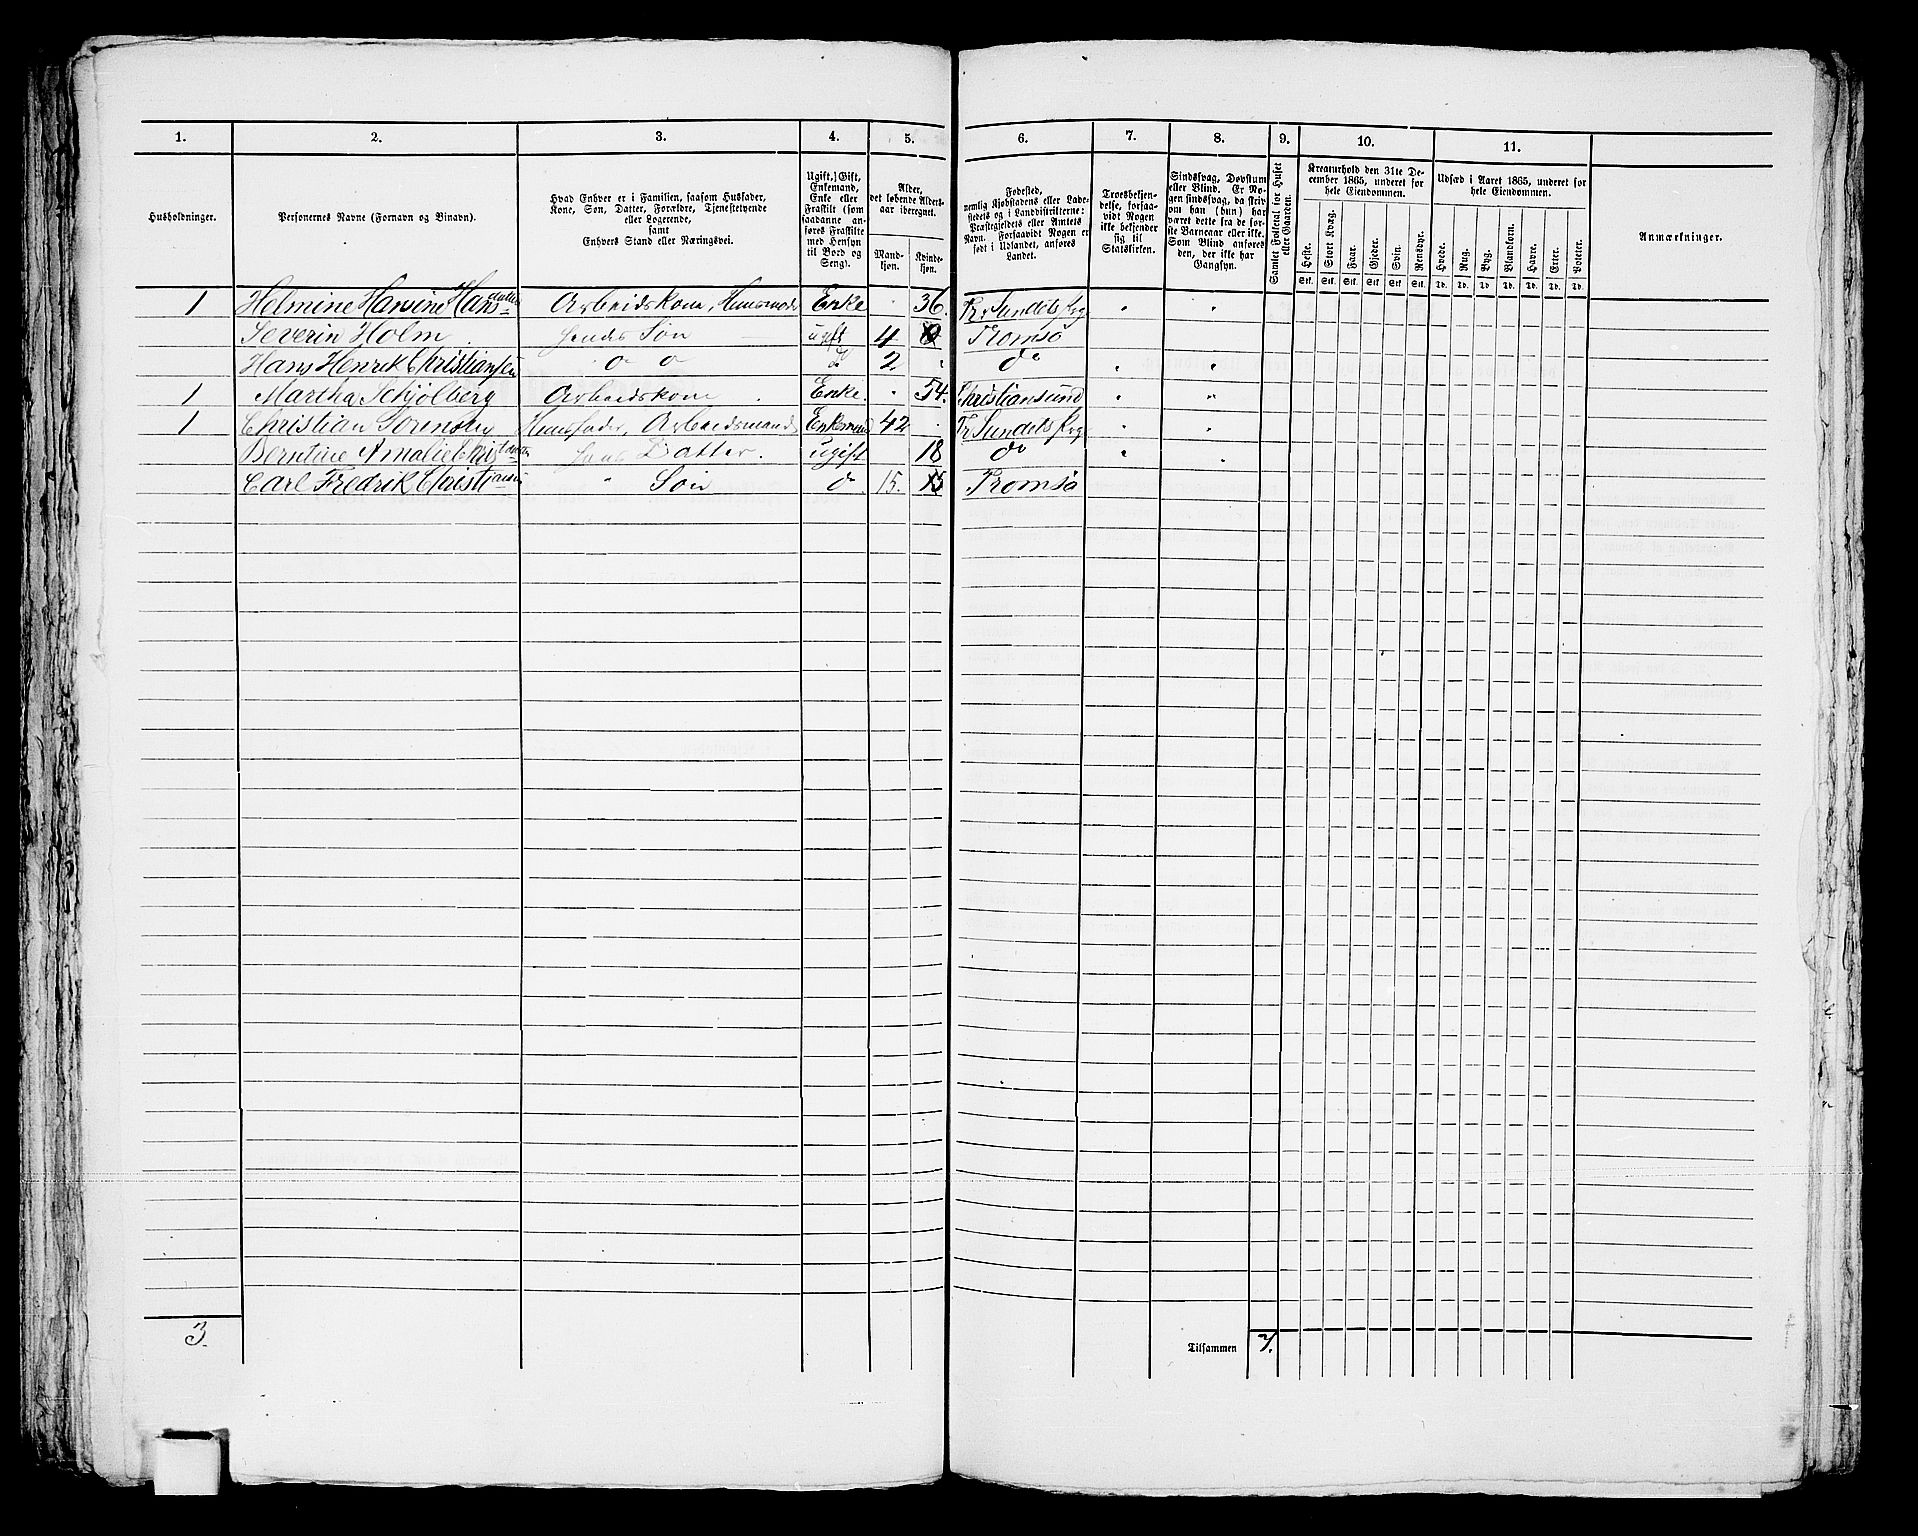 1. 2. 3. 4. 5. 6. 7. 8. 9. 10. 11.
Husholdninger.
Personernes Navne (Fornavn og Binavn).
Hvad Enhver er i Familien, saasom Husfader,
Kone, Søn, Datter, Forældre, Tjenestetyende
eller Logerende,
samt
Enhvers Stand eller Næringsvei.
Ugift, Gift,
Enkemand,
Enke eller
Fraskilt (som
saadanne an-
føres Fraskilte
med Hensyn
til Bord og
Seng).
Alder,
det løbende Alders-
aar iberegnet.
Mand-
kjøn.
Kvinde-
kjøn.
Fødested,
nemlig Kjøbstadens eller Lade-
stedets og i Landdistrikterne:
Præstegjeldets eller Amtets
Navn. Forsaavidt Nogen er
født i Udlandet, anføres
Landet.
Troesbekjen-
delse, forsaa-
vidt Nogen
ikke bekjender
sig til
Statskirken.
Sindssvag, Døvstum
eller Blind. Er No-
gen sindssvag, da skriv
om han (hun) har
været dette fra de før-
ste Barneaar eller ikke.
Som Blind anføres
den, der ikke har
Gangsyn.
Samlet Folketal for Huset
eller Gaarden.
Kreaturhold den 31te De-
cember 1865, underet for
hele Eiendommen.
Heste. Stort Kvæg. Faar. Gjeder. Svin. Rensdyr.
Stk. Stk. Stk. Stk. Stk. Stk.
Udsæd i Aaret 1865, underet for
hele Eiendommen.
Hvede. Rug. Byg. Blandkorn. Havre. Erter. Poteter.
Td. Td. Td. Td. Td. Td. Td.
Anmærkninger.
1 Helmine Hansine Hansdatter Arbeidskone, Enke 36.
Severin Holm Hendes Søn ugift 4 Tromsø
Hans Henrik Christiansen do 2 do
1 Martha Schjølberg Arbeidskone Enke 54. Christiansund
1 Christian Sørensen Huusfader, Arbeidsmand Enkemand 42
Berntine Amalie Hans Datter. ugift 18 do
Carl Fredrik Christiansen " Søn do 15. Tromsø
3. Tilsammen 7.